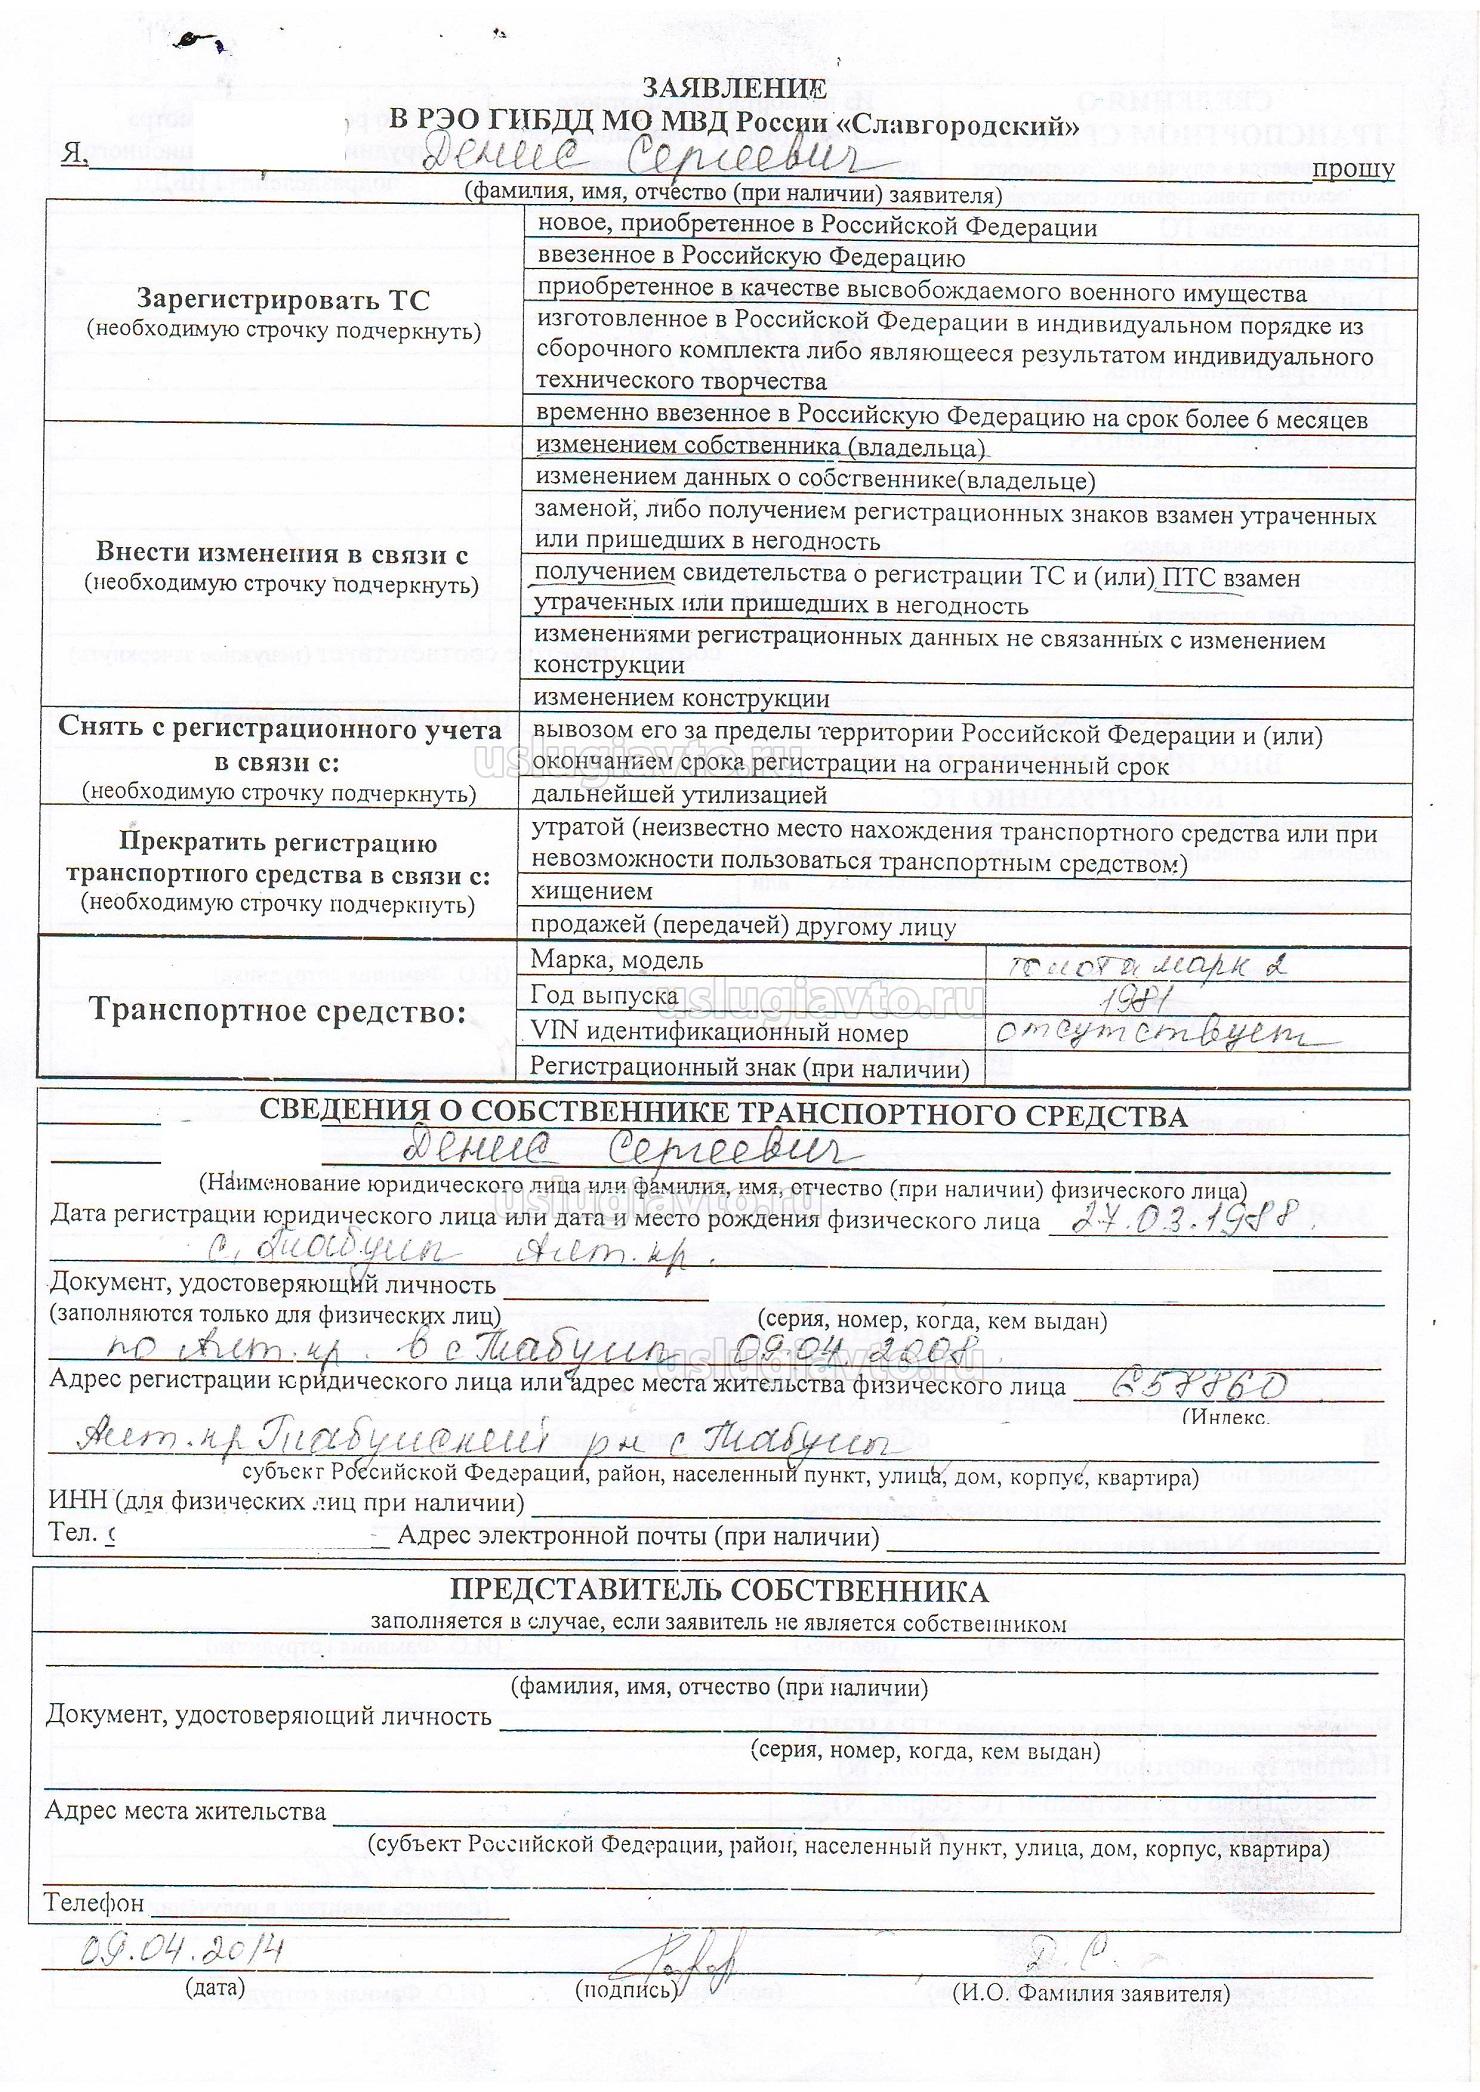 ЗАЯВЛЕНИЕ
В РЭО ГИБДД МО МВД России «Славгородский»
Я, Денис Сергеевич прошу
(фамилия, имя, отчество (при наличии) заявителя)
Зарегистрировать ТС
(необходимую строчку подчеркнуть)
новое, приобретенное в Российской Федерации
ввезенное в Российскую Федерацию
приобретенное в качестве высвобождаемого военного имущества
изготовленное в Российской Федерации в индивидуальном порядке из
сборочного комплекта либо являющееся результатом индивидуального
технического творчества
временно ввезенное в Российскую Федерацию на срок более 6 месяцев
Внести изменения в связи с
(необходимую строчку подчеркнуть)
изменением собственника (владельца)
изменением данных о собственнике(владельце)
заменой, либо получением регистрационных знаков взамен утраченных
или пришедших в негодность
получением свидетельства о регистрации ТС и (или) ПТС взамен
утраченных или пришедших в негодность
изменениями регистрационных данных не связанных с изменением
конструкции
изменением конструкции
Снять с регистрационного учета
в связи с:
(необходимую строчку подчеркнуть)
вывозом его за пределы территории Российской Федерации и (или)
окончанием срока регистрации на ограниченный срок
дальнейшей утилизацией
uslugiavto.ru
Прекратить регистрацию
транспортного средства в связи с:
(необходимую строчку подчеркнуть)
утратой (неизвестно место нахождения транспортного средства или при
невозможности пользоваться транспортным средством)
хищением
продажей (передачей) другому лицу
Транспортное средство:
Марка, модель тойота марк 2
Год выпуска 1981
uslugiavto.ru
VIN идентификационный номер отсутствует
Регистрационный знак (при наличии)
СВЕДЕНИЯ О СОБСТВЕННИКЕ ТРАНСПОРТНОГО СРЕДСТВА
Денис Сергеевич
(Наименование юридического лица или фамилия, имя, отчество (при наличии) физического лица)
uslugiavto.ru
Дата регистрации юридического лица или дата и место рождения физического лица 27.03.1988.
с. Табуны Алт. кр.
Документ, удостоверяющий личность
(заполняются только для физических лиц) (серия, номер, когда, кем выдан)
по Алт. кр. в с Табуны 09.04.2008.
uslugiavto.ru
Адрес регистрации юридического лица или адрес места жительства физического лица 658860
(Индекс,
Алт. кр Табунский рн с Табуны
субъект Российской Федерации, район, населенный пункт, улица, дом, корпус, квартира)
ИНН (для физических лиц при наличии)
Тел. Адрес электронной почты (при наличии)
ПРЕДСТАВИТЕЛЬ СОБСТВЕННИКА
заполняется в случае, если заявитель не является собственником
(фамилия, имя, отчество (при наличии)
Документ, удостоверяющий личность
(серия, номер, когда, кем выдан)
Адрес места жительства
(субъект Российской Федерации, район, населенный пункт, улица, дом, корпус, квартира)
Телефон
09.04.2014 Д. С.
(дата) (подпись) (И.О. Фамилия заявителя)